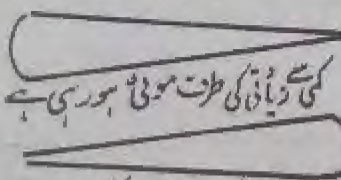 کمی سے زیادتی کی طرف موٹی ہو رہی ہے